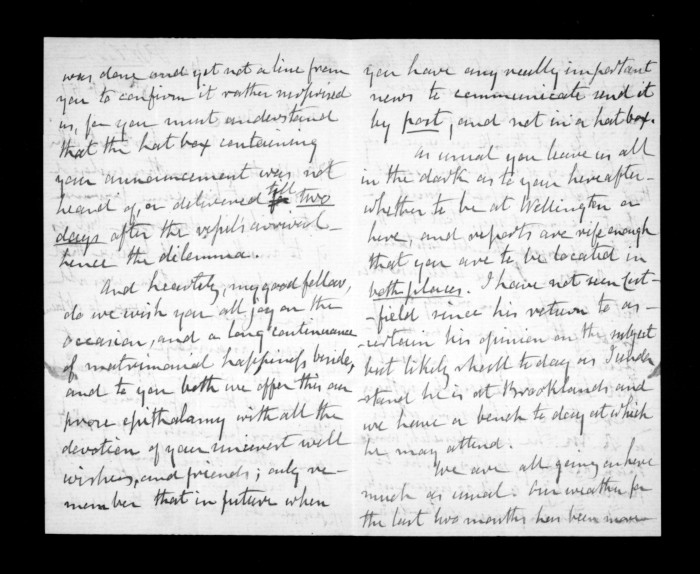 was done and yet not a line from
you to confirm it rather surprised
us, for you must understand
that the hat box containing
your announcement was not
heard of or delivered till two
days after the vessel's arrival –
hence the dilemma.
And heartily, my good fellow,
do we wish you all joy on the
occasion, and a long continuance
of matrimonial happiness beside,
and to you both we offer this our
prose epithalamy with all the
devotion of your sincerest well
wishers, and friends; only re-
member that in future when
you have any really important
news to communicate send it
by post, and not in a hat box.
As usual you leave us all
in the dark as to your hereafter –
whether to be at Wellington or
here, and reports are rife enough
that you are to be located in
both places. I have not seen Cut-
-field since his return to as-
-certain his opinion on the subject
but likely shall to day as I under
-stand he is at Brooklands and
we have a bench to day at which
he may attend.
We are all going on here
much as usual. Our weather for
the last two months has been more